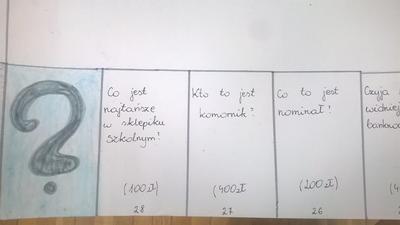 ?
Co jest
najtańsze
w sklepiku
szkolnym?
(100 zł)
28
Kto to jest
komornik?
(400 zł)
27
Co to jest
nominał?
(200 zł)
26
Czyja